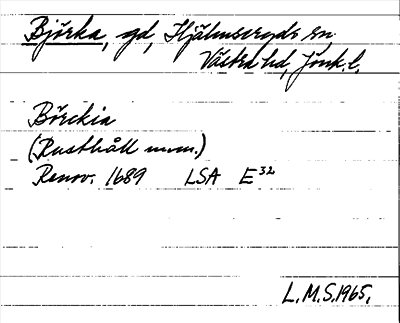 Björka, gd, Hjälmseryds sn
Västra hd, Jönk. l.
Börckia
(Rusthåll m.m.)
Renov. 1689 LSA E³²
L.M.S. 1965.